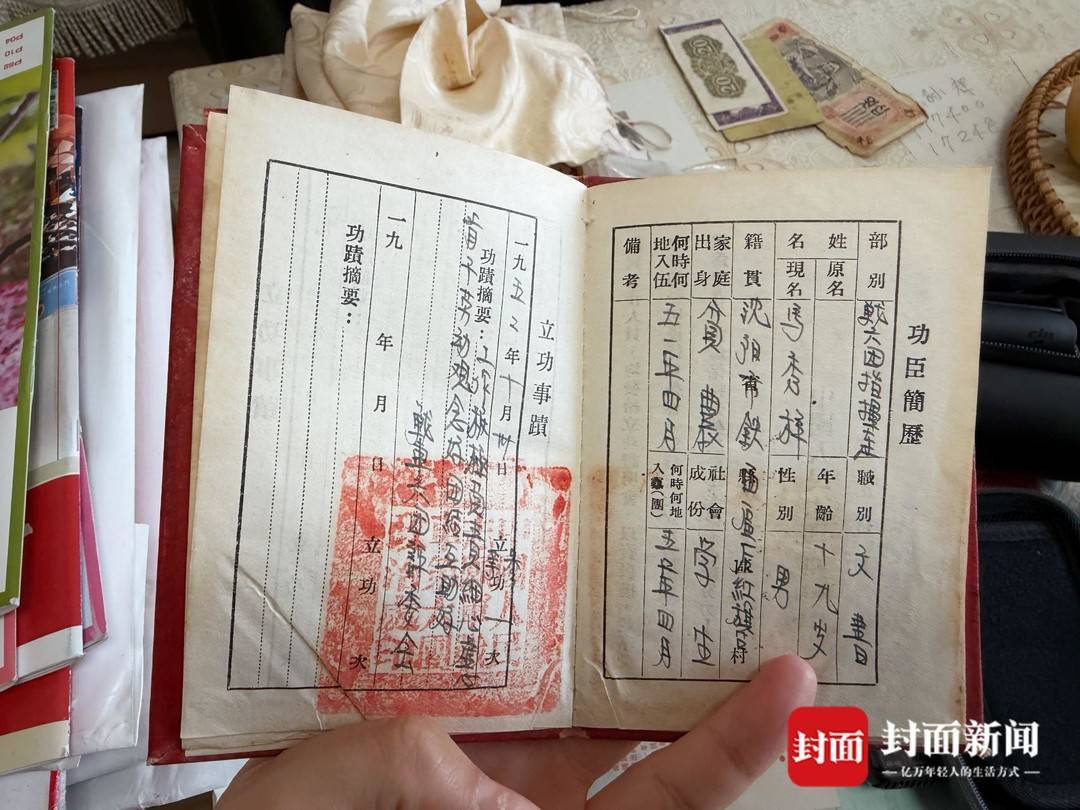 功臣簡歷
部別 戰六団指揮连 職別 文書
姓名 原名 年齡 十九岁
現名 馬秀祥 性別 男
籍貫 沈阳市鉄西區 縣 區 红旗 村
家庭出身 貧農 社會成份 学生
何時何地入伍 五一年四月 何時何地入黨(團) 五一年四月
備考
立功事蹟
一九五二年十月卅日 立功一次
功蹟摘要：工作積極負責細心肯
肯干劳动观念好团結互助好
戰車六団記委会
一九 年 月 日 立功 次
功蹟摘要：
P04
P10
P52
17400
17248
封面
封面新闻
亿万年轻人的生活方式